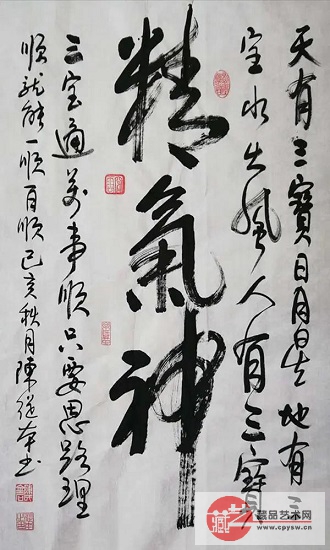 天有三寶日月星地有三
宝水火風人有三寶
精氣神
三宝通萬事順只要思路理
順就能一順百順己亥秋月陳本书
藏品艺术网
www.cpysw.cn